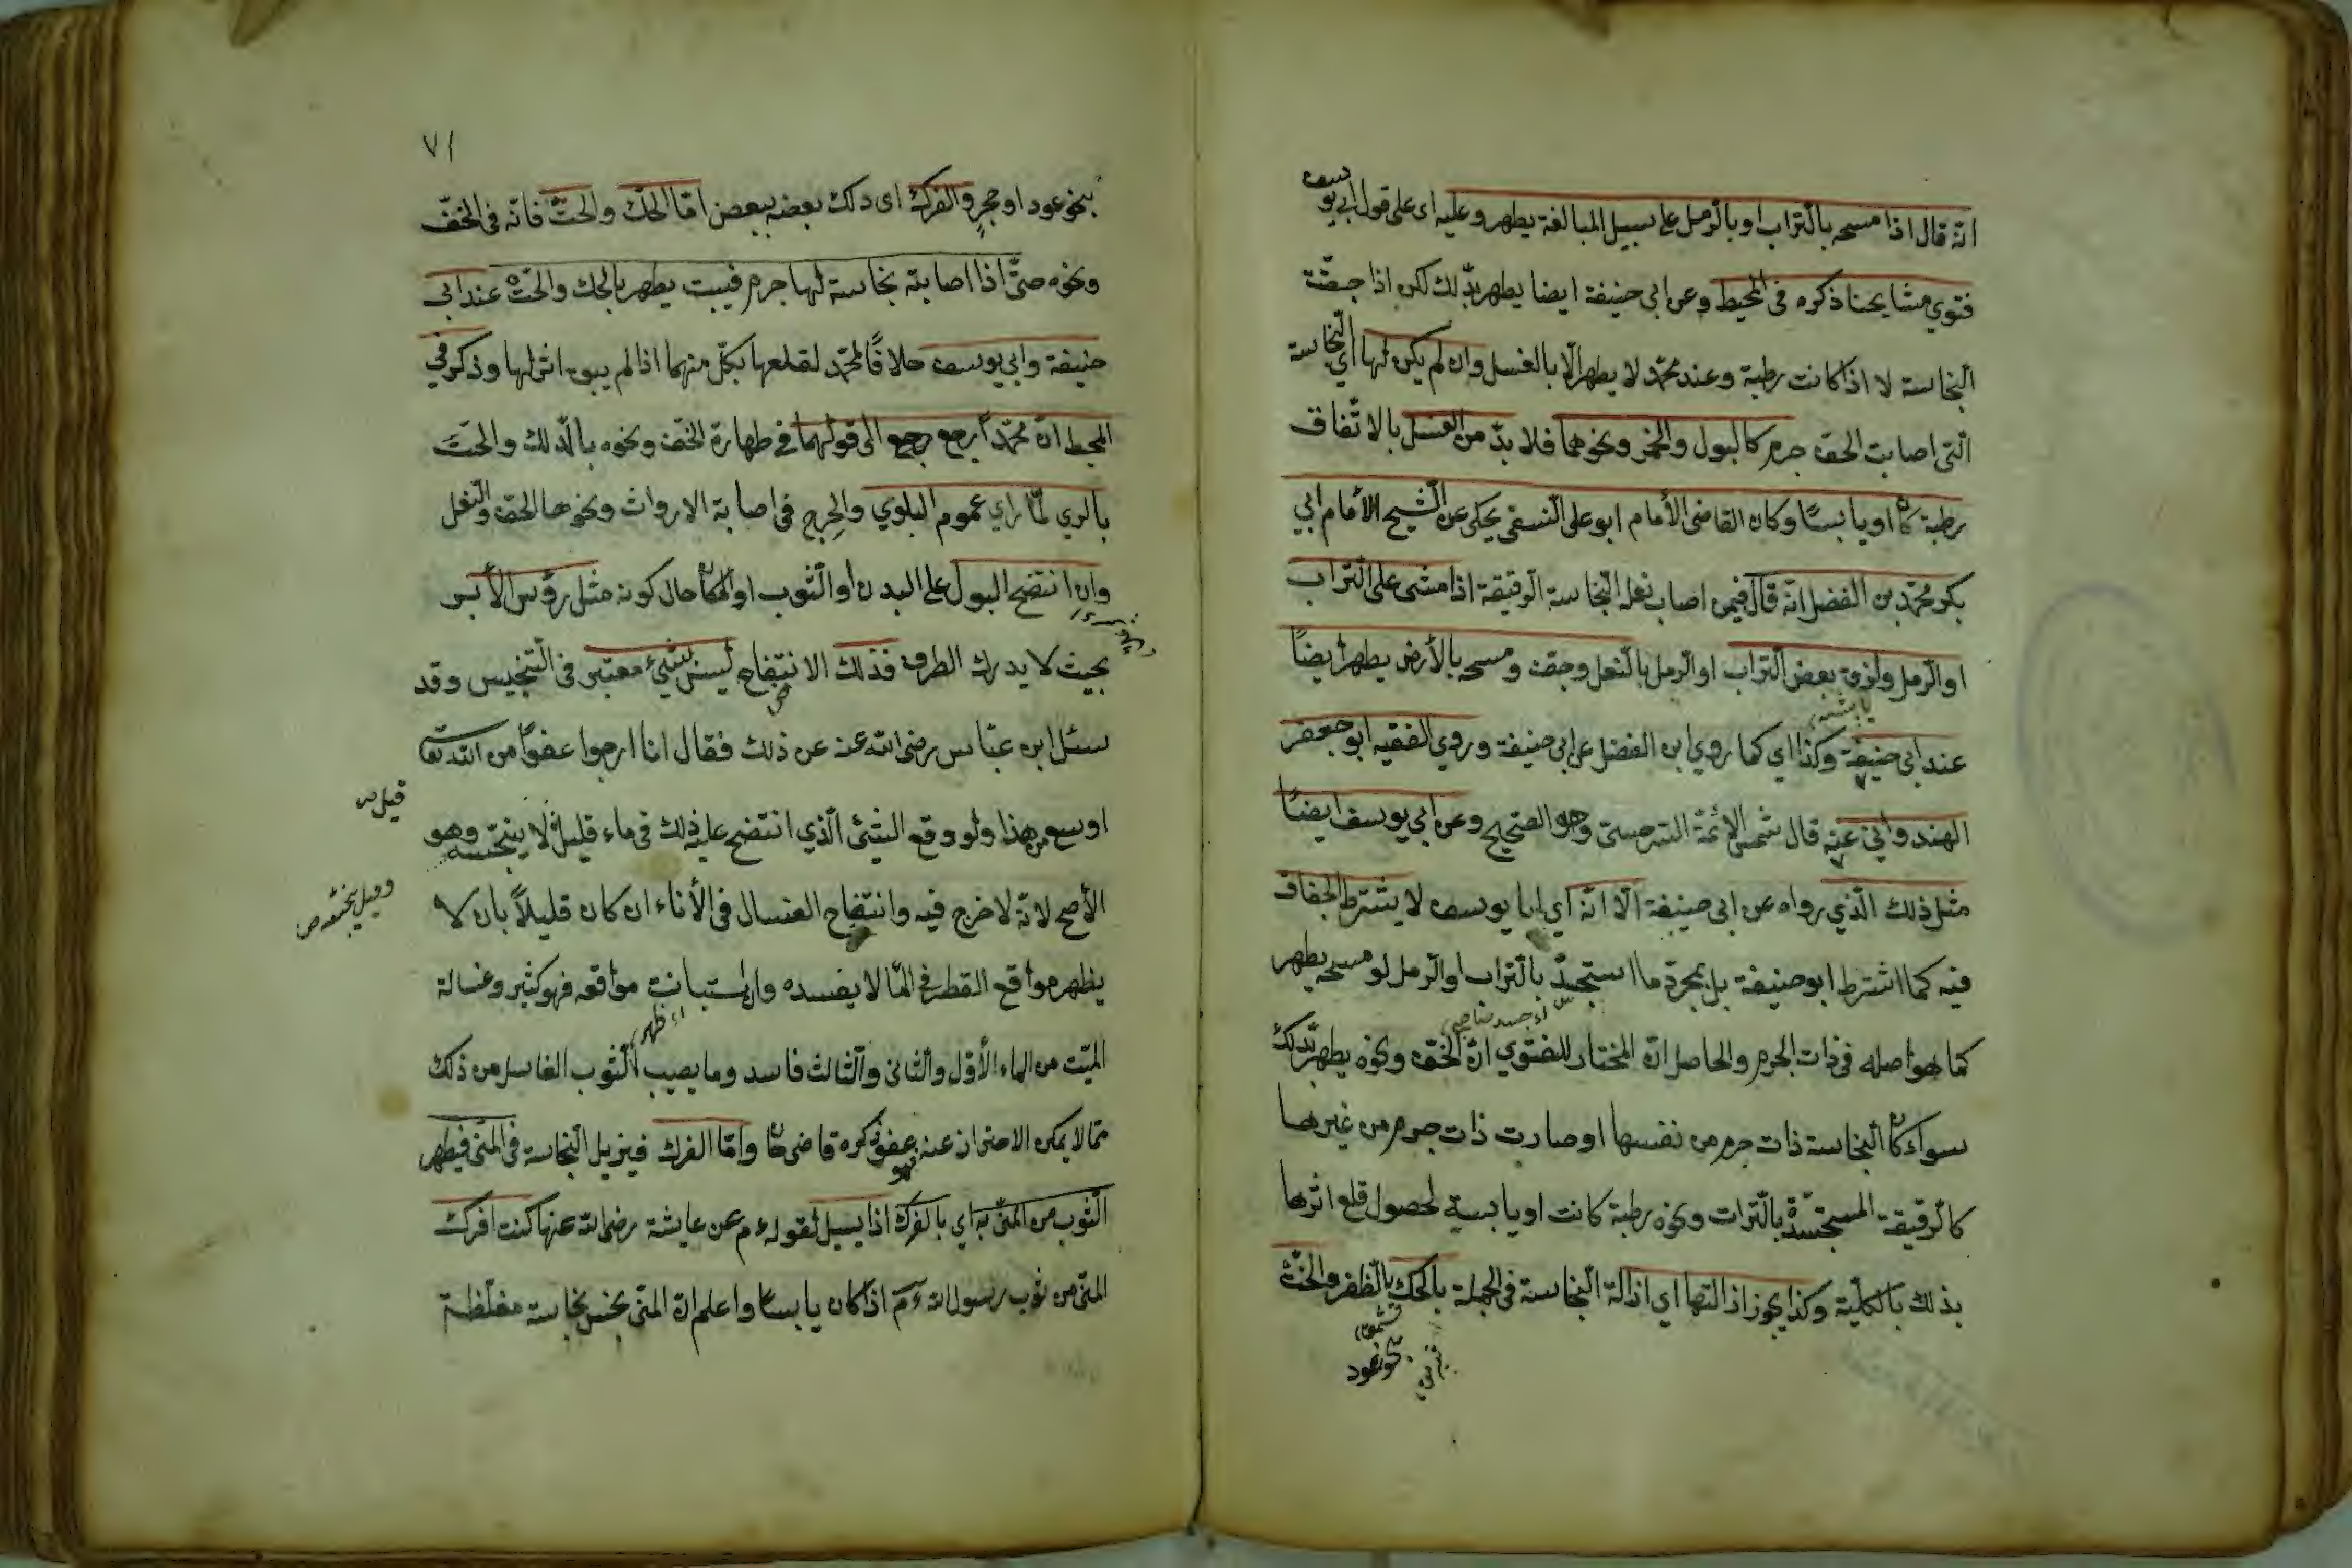 انه قال اذا مسحه بالتراب او بالرمل على سبيل المبالغة يطهر وعليه اى على قول ابي يوسف
فتوي مشايخنا ذكره فى المحيط وعن ابى حنيفة ايضا يطهر بذلك لكن اذا جفّت
النجاسة لا اذا كانت رطبة وعند محمّد لا يطهر الّا بالغسل وان لم يكن لها اي النجاسة
الّتى اصابت الخف جرم كالبول والخمر ونحوهما فلا بدّ من الغسل بالاتّفاق
رطبة كان او يابسًا وكان القاضى الأمام ابو على النسفى يحكى عن الشيخ الأمام ابي
بكر محمّد بن الفضل انّه قال فيمن اصاب نعله النّجاسة الرقيقة اذا مشى على التراب
او الرمل ولزق بعض التراب او الرمل بالنعل وجف ومسحه بالأرض يطهر أيضاً
عند ابى حنيفة وكذا اي كما روي ابن الفضل عن ابى حنيفة وروي الفقيه ابو جعفر
الهندوانى عنه قال شمس الائمة السرخسى وهو الصحيح وعن ابي يوسف ايضًا
مثل ذلك الّذي رواه عن ابى حنيفة الّا انّه اي ابا يوسف لا يشترط الجفاف
فيه كما اشترط ابو حنيفة بل بمجرّد ما استجسد بالتراب او الرمل لو مسحه يطهر
كما هو اصله فى ذات الجرم والحاصل انّ المختار للفتوي انّ الخف ونحوه يطهر بالدلك
سواء كان النجاسة ذات جرم من نفسها او صارت ذات جرم من غيرها
كالرقيقة المستجسدة بالتراب ونحوه رطبة كانت او يابسة لحصول قلع اثرها
بذلك بالكلّية وكذا يجوز ازالتها اي ازالة النجاسة فى الجملة بالحك بالظفر والحتّ
بنحو عود
٧١
بنحو عود او حجر والفرك اى دلك بعضه ببعض امّا الحك والحتّ فانّه فى الخفّ
ونحوه حتّى اذا اصابته نجاسة لها جرم فيبست يطهر بالحك والحتّ عند ابى
حنيفة وابي يوسف خلافًا لمحمّد لقلعها بكلّ منهما اذا لم يبق اثر لها وذكر فى
المحيط انّ محمّدًا رجع الى قولهما فى طهارة الخف ونحوه بالدلك والحتّ
بالري لمّا راي عموم البلوي والحرج فى اصابة الارواث ونحوها الخف والنعل
وان انتضح البول على البدن او الثوب او المكان حال كونه مثل رؤس الأبر
بحيث لا يدرك الطرف فذلك الانتضاح ليس بشيئ معتبر فى التنجيس وقد
سئل ابن عبّاس رضى الله عنه عن ذلك فقال انا ارجوا عفوًا من الله تعالى
اوسع من هذا ولو وقع الشيئ الّذي انتضح عليه ذلك فى ماء قليل قيل لا ينجّسه وهو
الأصح لانّه لا حرج فيه وانتضاح الغسال فى الأناء ان كان قليلاً بان لا
يظهر مواقع القطر فى الماء لا يفسده وان استبانت مواقعه فهو كثير وغسالة
الميّت من الماء الأوّل والثانى والثالث فاسد وما يصيب الثوب الغاسل من ذلك
ممّا لا يمكن الاحتراز عنه فهو عفو ذكره قاضى خان وامّا الفرك فيزيل النجاسة فى المنى فيطهر
الثوب من المنى به اي بالفرك اذا يبس لقوله عم عن عايشة رضى الله عنها كنت افرك
المنى من ثوب رسول الله عم اذا كان يابسا واعلم انّ المنى نجس نجاسة مغلّظة